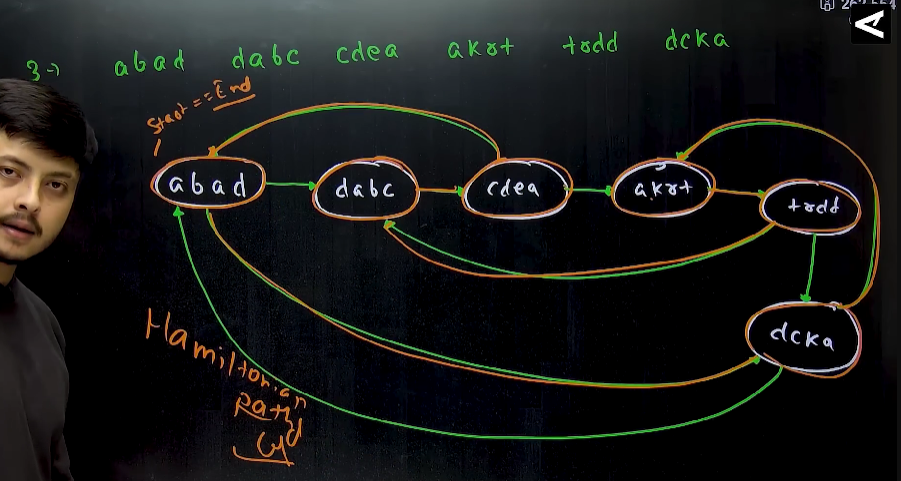 3→ abad dabc cdea akrt trdd dcka
Start == End
abad dabc cdea akrt trdd
dcka
Hamiltonian
Path